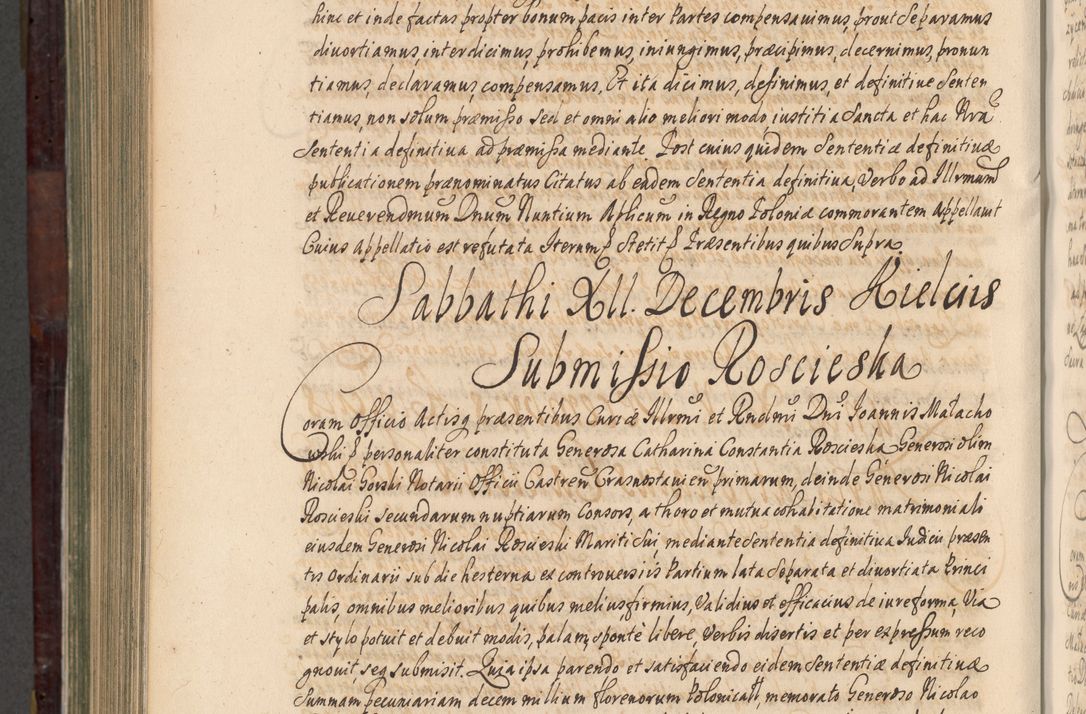 hinc et inde factas propter bonum pacis inter Partes compensauimus, prout Separamus
diuortiamus, interdicimus, prohibemus, iniungimus, præcipimus, decernimus, pronun
tiamus, declaramus, compensamus, Et ita dicimus, definimus, et definitiue Senten
tiamus, non solum præmisso sed et omni alio meliori modo iustitia Sancta et hac Nrã
Sententia definitiua ad præmissa mediante. Post cuius quidem Sententiæ definitiuæ
publicationem prænominatus Citatus ab eadem Sententia definitiua, Verbo ad Illrmum
et Reuerendmum Dnum Nuntium Aplicum in Regno Poloniæ commorantem Appellauit
Cuius Appellatio est refutata Iterum P Stetit P Præsentibus quibus Supra
Sabbathi XII. Decembris Kielciis
Submissio Roscieska
Coram Officio Actisq præsentibus Curiæ Illrmi et Rndmi Dni Joannis Małacho
wski P personaliter constituta Generosa Catharina Constantia Roscieska Generosi olim
Nicolai Gorski Notarii Officii Castren Crasnostauien primarum, deinde Generosi Nicolai
Roscieski secundarum nuptiarum Consors, a thoro et mutua cohabitatione matrimoniali
eiusdem Generosi Nicolai Roscieski Mariti sui, mediante sententia definitiua Iudicii præsen
tis Ordinarii sub die hesterna ex controuersiis Partium lata Separata et diuortiata Princi
palis, omnibus melioribus quibus melius firmius, Validius et efficacius de iure forma, Via
et stylo potuit et debuit modis, palam, sponte libere Verbis disertis et per expressum reco
gnouit seq submisit. Quia ipsa parendo et satisfaciendo eidem Sententiæ definitiuæ
Summam pecuniariam decem millium florenorum Polonicall, memorato Generoso Nicolao